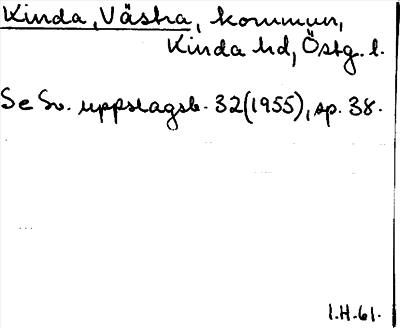 Kinda, Västra, kommun,
Kinda hd, Östg. l.
Se Sv. uppslagsb. 32(1955), sp. 38.
I.H.61.